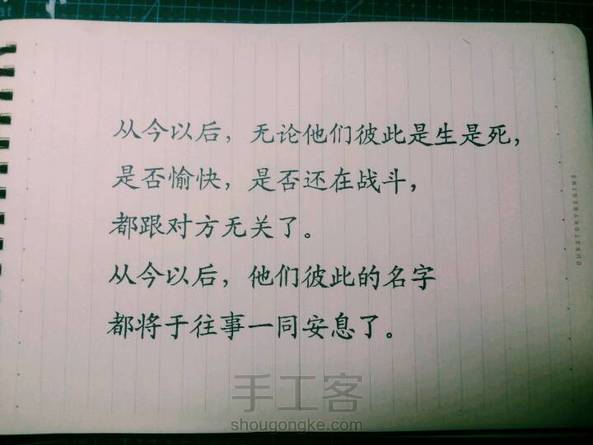 从今以后，无论他们彼此是生是死，
是否愉快，是否还在战斗，
都跟对方无关了。
从今以后，他们彼此的名字
都将于往事一同安息了。
手工客
shougongke.com